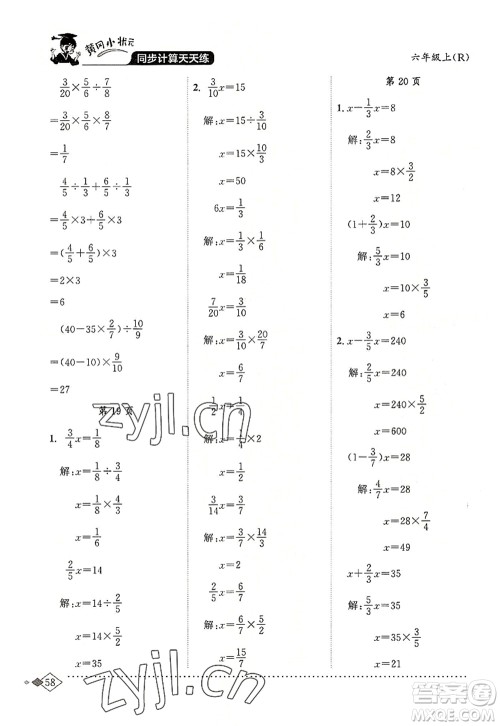 黄冈小状元
同步计算天天练
六年级上(R)
3/20×5/6÷7/8
=3/20×5/6×8/7
=1/7
4/5÷1/3+6/5÷1/3
=4/5×3+6/5×3
=(4/5+6/5)×3
=2×3
=6
(40-35×2/7)÷10/9
=(40-10)×9/10
=27
第19页
1. 3/4x=1/8
解:x=1/8÷3/4
x=1/6
2/5x=14
解:x=14÷2/5
x=14×5/2
x=35
2. 3/10x=15
解:x=15÷3/10
x=15×10/3
x=50
6x=1/3
解:x=1/3×1/6
x=1/18
7/20x=3/10
解:x=3/10×20/7
x=6/7
1/2x=1/4
解:x=1/4×2
x=1/2
3/14x=3/2
解:x=3/2×14/3
x=7
2/5x=3/8
解:x=3/8×5/2
x=15/16
第20页
1. x-1/3x=8
解:2/3x=8
x=8×3/2
x=12
(1+2/3)x=10
解:5/3x=10
x=10×3/5
x=6
2. x-3/5x=240
解:2/5x=240
x=240×5/2
x=600
(1-3/7)x=28
解:4/7x=28
x=28×7/4
x=49
x+2/3x=35
解:5/3x=35
x=35×3/5
x=21
58
zyjl.cn
zyjl.cn
答案圈
MXQE.COM